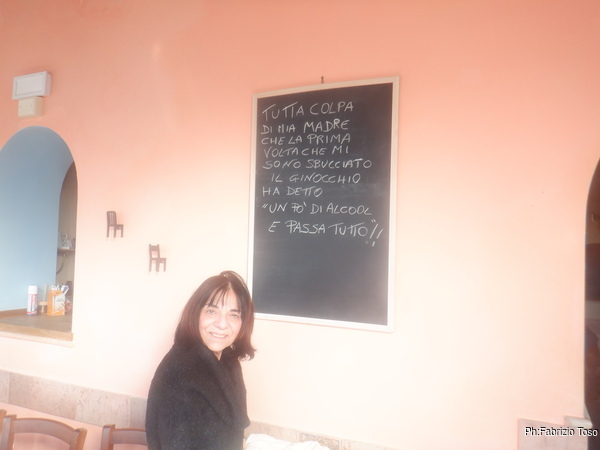 TUTTA COLPA
DI MIA MADRE
CHE LA PRIMA
VOLTA CHE MI
SONO SBUCCIATO
IL GINOCCHIO
HA DETTO
"UN PO' DI ALCOOL
E PASSA TUTTO"!!
Ph:Fabrizio Toso